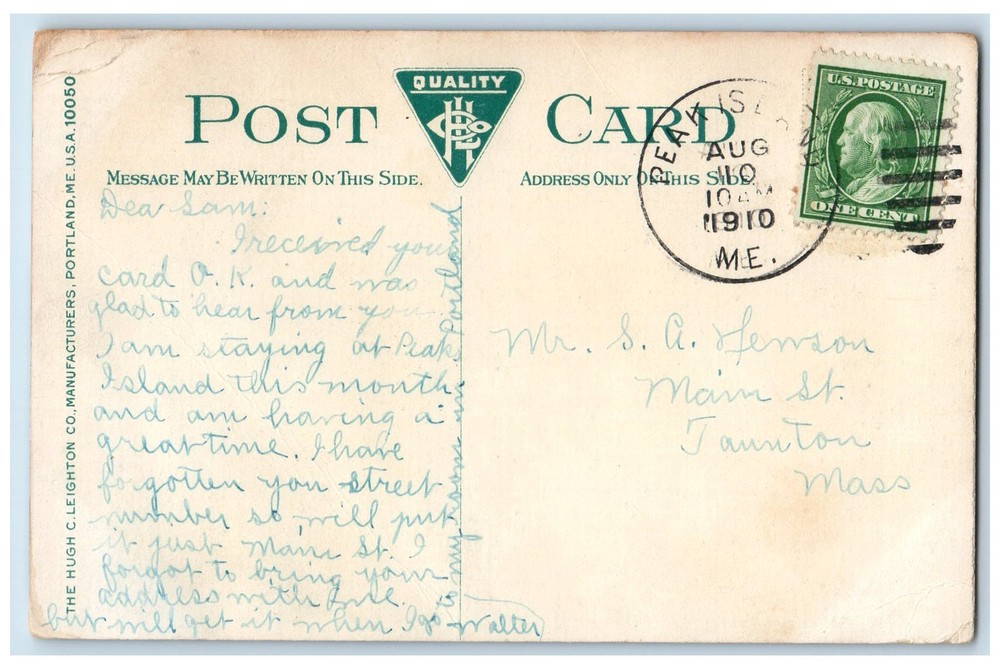 POST CARD
QUALITY
MESSAGE MAY BE WRITTEN ON THIS SIDE.
ADDRESS ONLY ON THIS SIDE.
THE HUGH C. LEIGHTON CO., MANUFACTURERS, PORTLAND, ME. U.S.A. 10050
PEAK ISLAND
AUG
10
10 AM
1910
ME.
U.S. POSTAGE
ONE CENT
Dea Sam:
I received you
card O.K. and was
glad to hear from you
I am staying at Peak
Island this month
and am having a
great time. I have
forgotten you street
number so will put
it just Main St. I
forgot to bring your
address with me.
but will get it when I go
to my room in Portland
Walter
Mr. S. A. Hewson
Main St.
Taunton
Mass